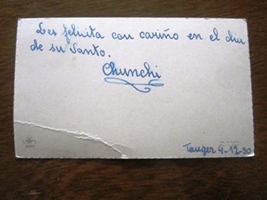 Les felicita con cariño en el dia
de su Santo.
Chunchi
Tanger 9-12-30